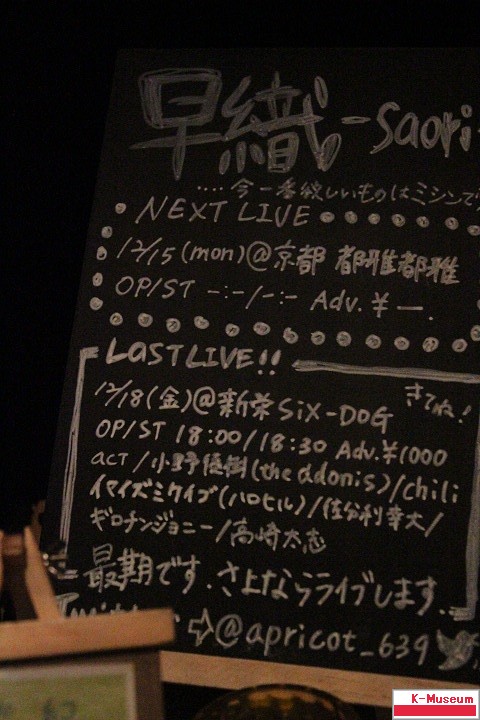 早織 -saori-
‥‥今一番欲しいものはミシンで
NEXT LIVE
12/15(mon)@京都 都雅都雅
OP/ST -:-/-:- Adv.¥ー.
LASTLIVE!!
きてね!
12/18(金)@新栄SiX-DOG
OP/ST 18:00/18:30 Adv.¥1000
ACT/小野優樹(the adonis)/chili
イマイズミケイブ(ハロヒル)/佐分利幸大/
ギロチンジョニー/高崎太志
最期です.さよならライブします.
☆@apricot_639
K-Museum